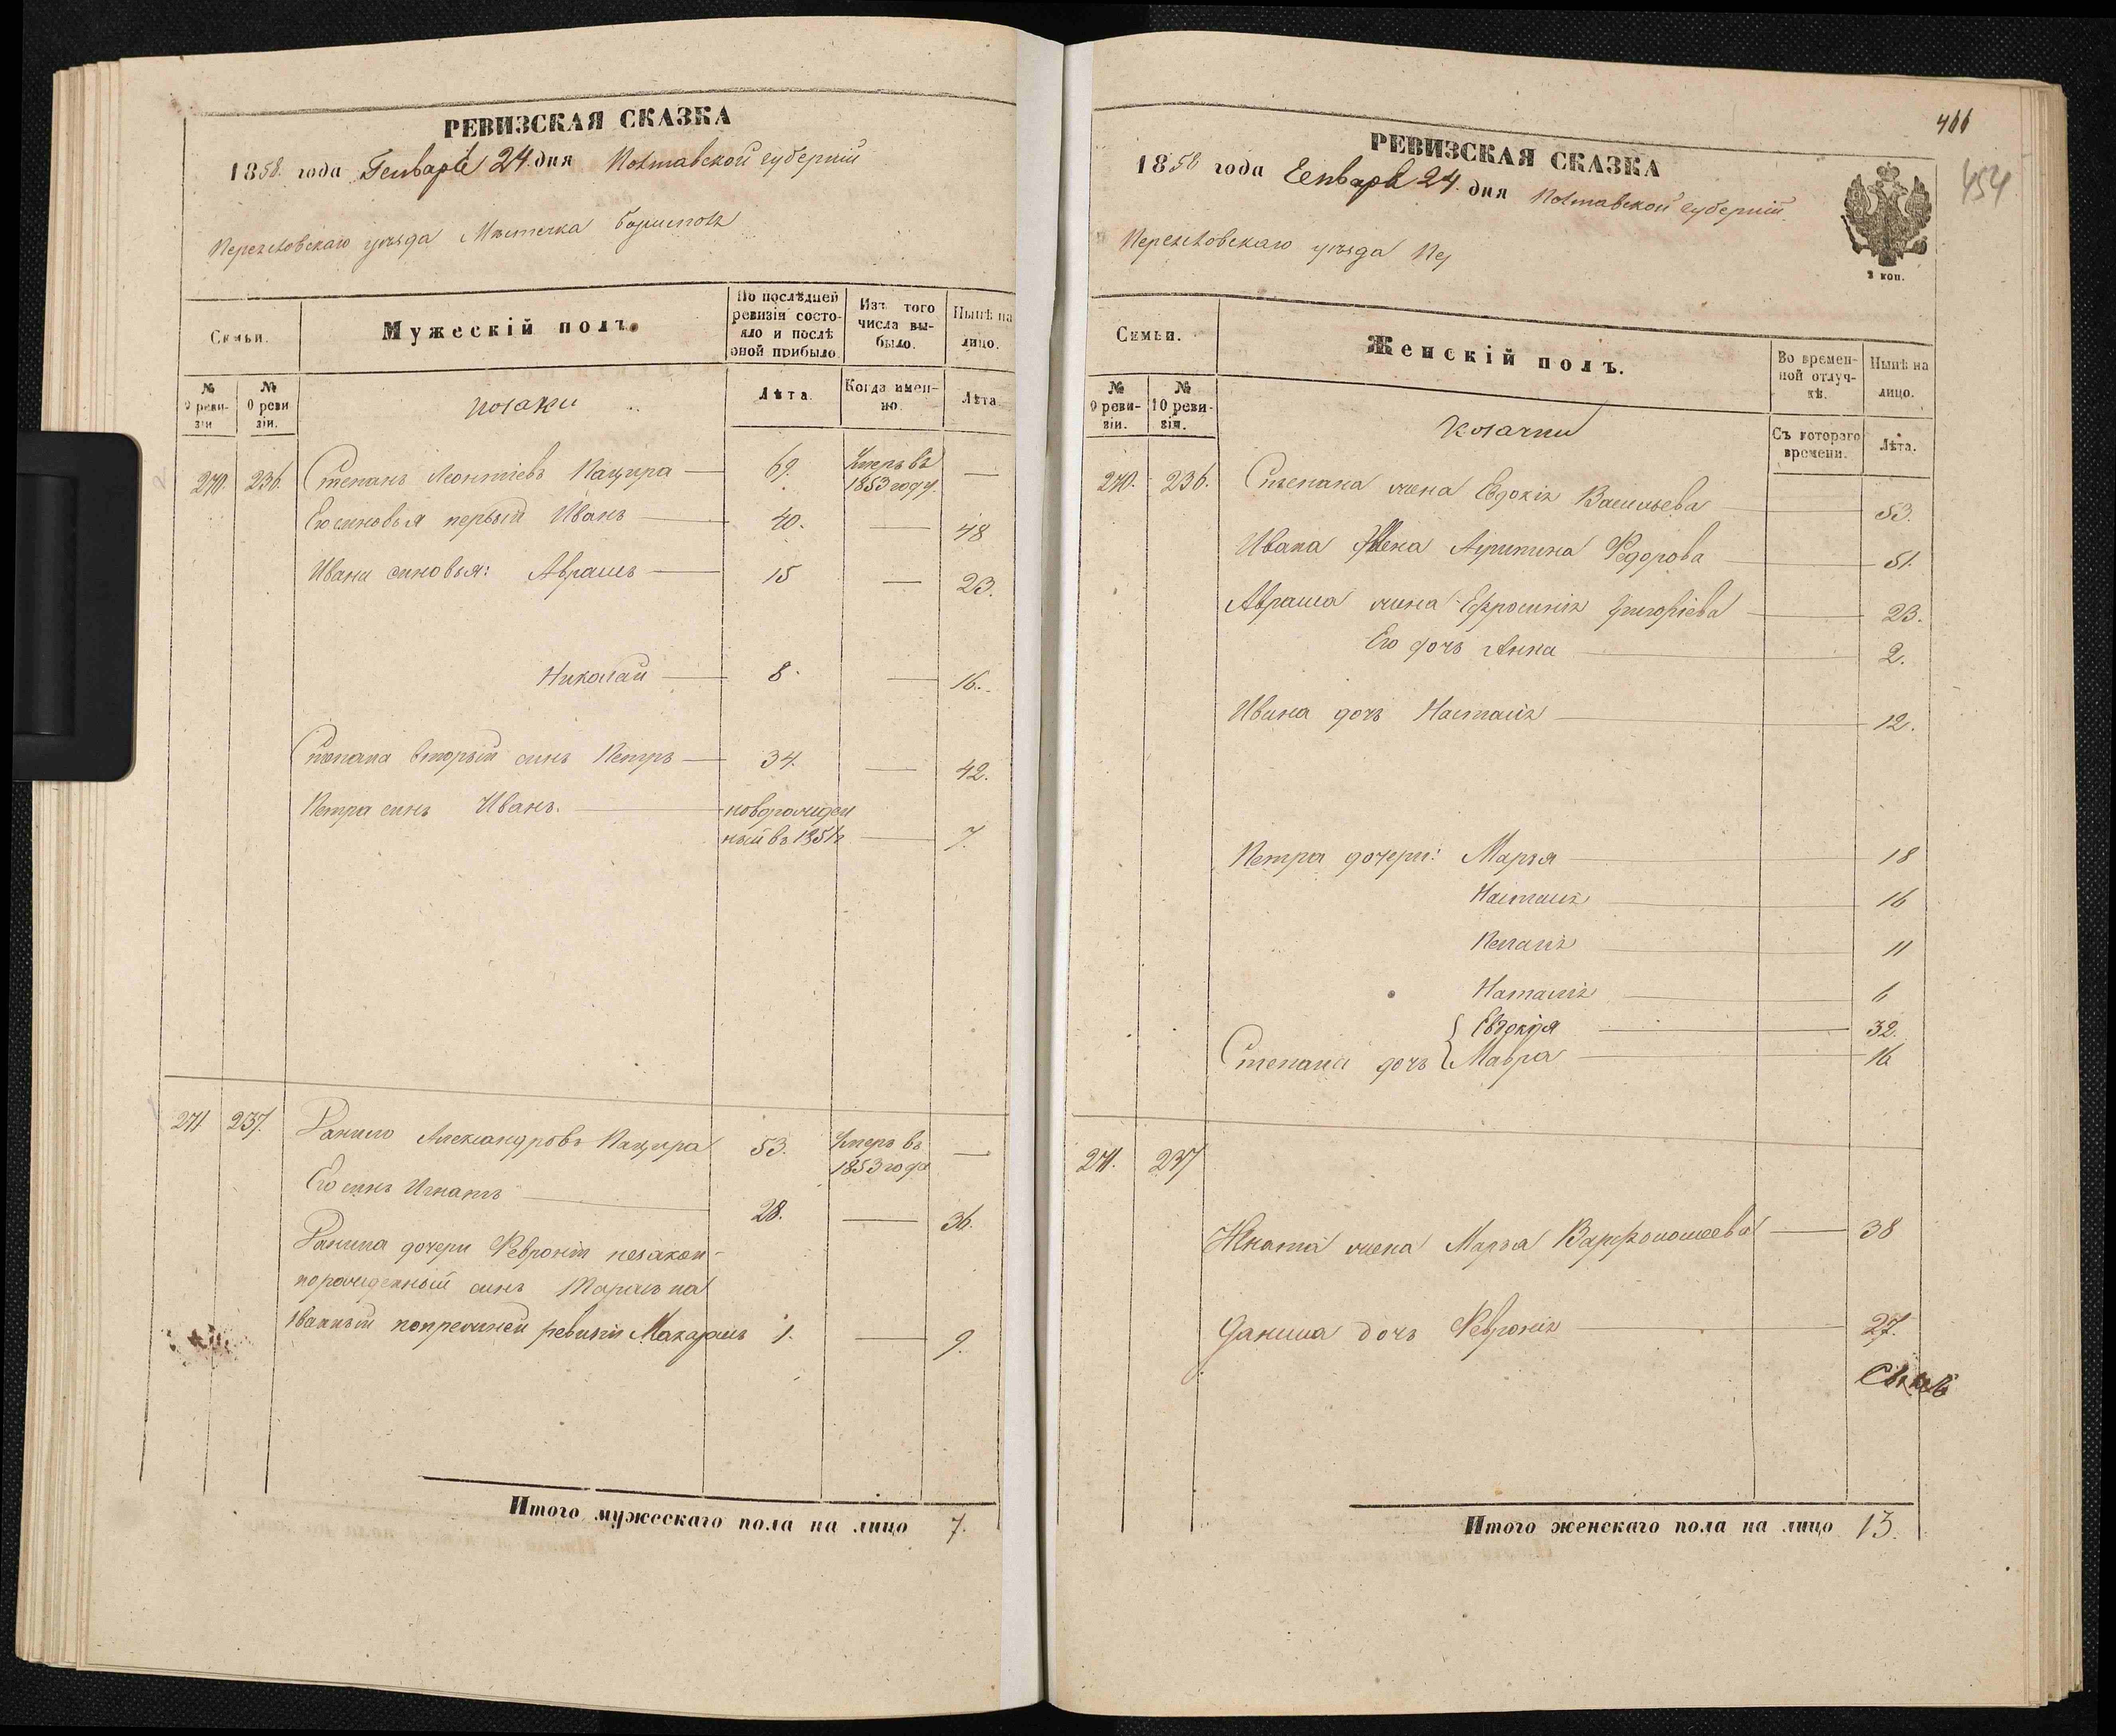 РЕВИЗСКАЯ СКАЗКА
1858 года Генваря 24 дня Полтавской губерніи
Переяславскаго уѣзда Мѣстечка Борисполя
Семьи.
Мужескій полъ.
По послѣдней ревизіи состояло и послѣ оной прибыло.
Изъ того числа выбыло.
Нынѣ на лицо.
№ 9 ревизіи
№ 10 ревизіи.
козаки
Лѣта.
Когда именно.
Лѣта
270. 236. Степанъ Леонтіевъ Пацюра — 69. Умеръ въ 1853 году. —
Его синовья первый Иванъ — 40. — 48
Ивана синовья: Аврамъ — 15 — 23.
Николай — 8. — 16.
Степана вторый синъ Петръ — 34. — 42.
Петра синъ Иванъ. — новорожден
ный въ 1851 г — 7.
271 237. Данило Александровъ Пацюра 53. Умеръ въ 1853 года —
Его синъ Игнатъ — 28. — 36.
Данила дочери Февроніи незакон-
норожденный синъ
званный по прежней ревизіи Макаримъ 1. — 9.
Итого мужескаго пола на лицо 7.
466
454
РЕВИЗСКАЯ СКАЗКА
1858 года Генваря 24. дня Полтавской губерніи
Переяславскаго уѣзда Пер
2 коп.
Семьи.
Женскій полъ.
Во временной отлучкѣ.
Нынѣ на лицо.
№ 9 ревизіи.
№ 10 ревизія.
Козачки
Съ котораго времени.
Лѣта.
270. 236. Степана жена Евдокія Васильева — 53.
Ивана жена Агрипина Федорова — 51.
Аврама жена Ефросинія Григоріева — 23.
Его дочь Анна — 2.
Ивана дочь Настасія — 12.
Петра дочери: Марья — 18
Настасія — 16
Пелагія — 11
Наталія — 6
Евдокія — 32.
Степана дочь Мавра — 16
271. 237
Игната жена Марья Варфоломеева — 38
Данила дочь Февронія — 27.
Итого женскаго пола на лицо 13.